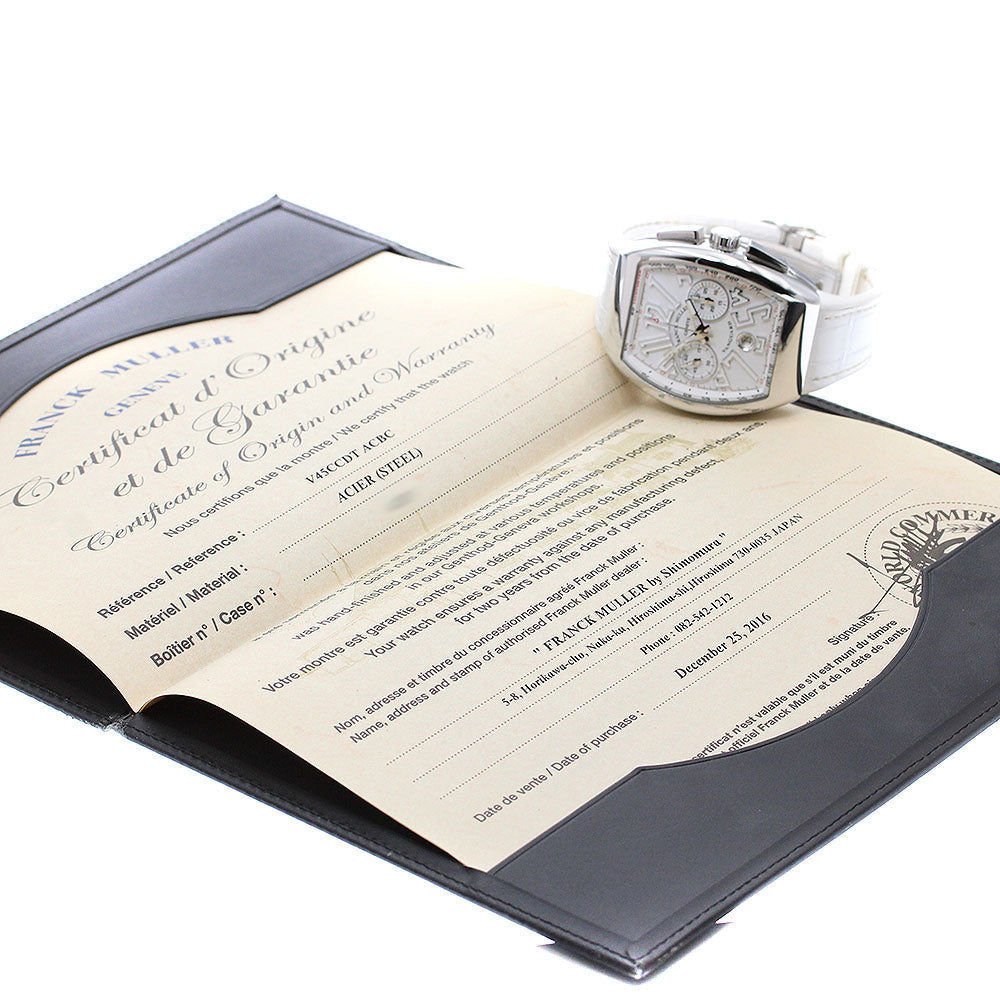 FRANCK MULLER
GENEVE
Certificat d'Origine
et de Garantie
Certificate of Origin and Warranty
Nous certifions que la montre / We certify that the watch
Référence / Reference : V45CCDT ACBC
Matériel / Material : ACIER (STEEL)
Boîtier n° / Case n° :
températures et positions
dans nos ateliers de Genthod-Genève.
was hand-finished and adjusted at various temperatures and positions
in our Genthod-Geneva workshops.
Votre montre est garantie contre toute défectuosité ou vice de fabrication pendant deux ans.
Your watch ensures a warranty against any manufacturing defect,
for two years from the date of purchase.
Nom, adresse et timbre du concessionnaire agréé Franck Muller :
Name, address and stamp of authorised Franck Muller dealer :
" FRANCK MULLER by Shimomura "
5-8, Horikawa-cho, Naka-ku, Hiroshima-shi,Hiroshima 730-0035 JAPAN
Phone : 082-542-1212
Date de vente / Date of purchase : December 25, 2016
Signature
WORLD COMMER
certificat n'est valable que s'il est muni du timbre
officiel Franck Muller et de la date de vente.
FRANCK MULLER
GENEVE